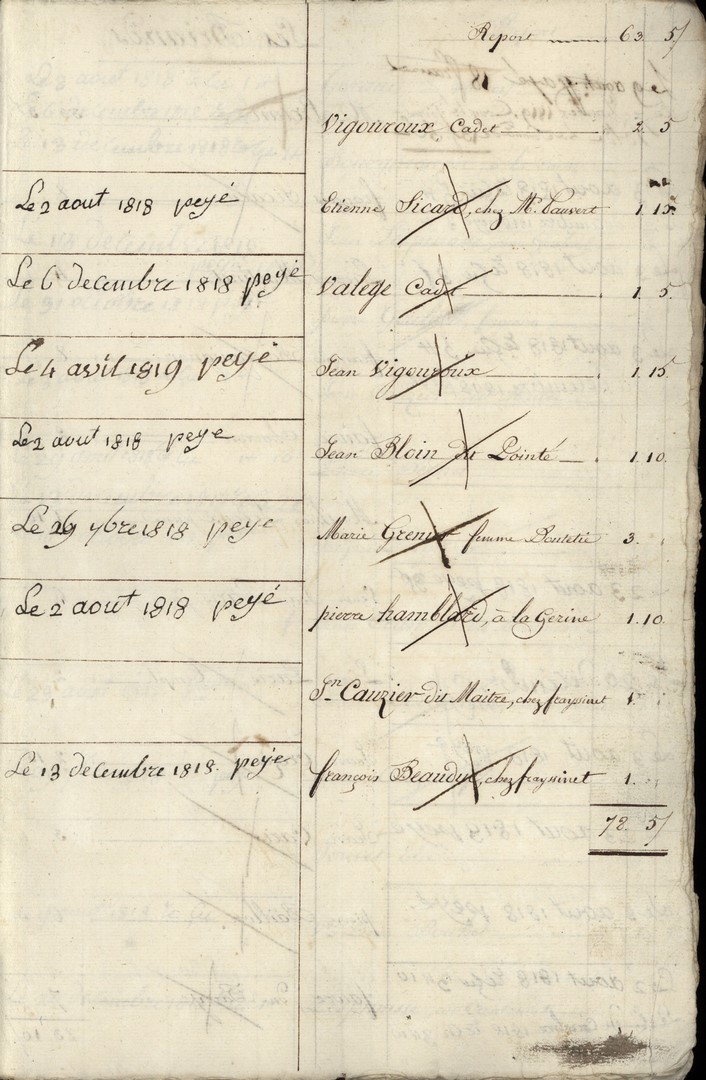 Report 63. 5/
Vigouroux Cadet 2. 5
Le 2 aout 1818 peyé Etienne Sicard, chez Mr. Pauvert 1. 15.
Le 6 decembre 1818 peyé Valege Cadet 1. 5.
Le 4 avril 1819 peyé Jean Vigouroux 1. 15
Le 2 aout 1818 peye Jean Bloin dit Pointé 1. 10.
Le 29 7bre 1818 peye Marie Grenier femme 3.
Le 2 aout 1818 peyé pierre hamblard, à la Gerine 1. 10.
Jn Cauzier dit Maitre, chez frayssinet 1.
Le 13 decembre 1818. peyé françois Beauduc, chez frayssinet 1.
78. 5/